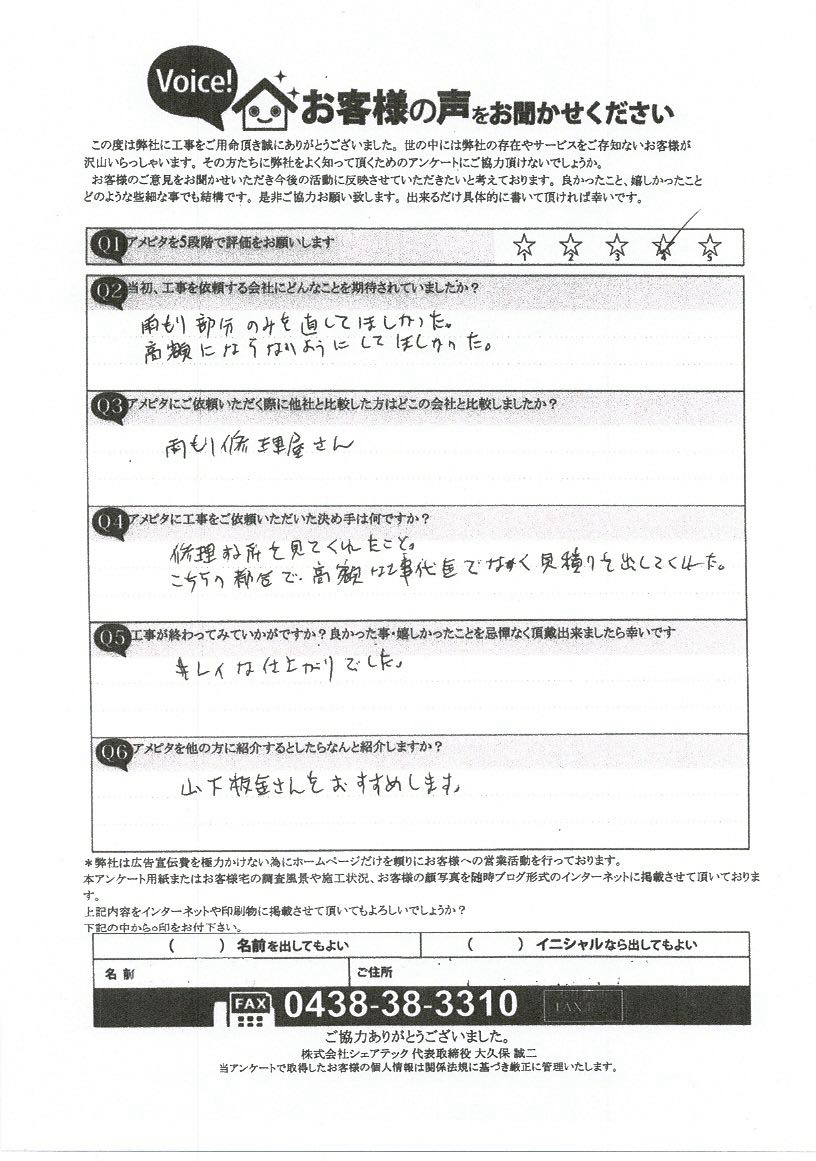 Voice!
お客様の声をお聞かせください
この度は弊社に工事をご用命頂き誠にありがとうございました。世の中には弊社の存在やサービスをご存知ないお客様が
沢山いらっしゃいます。その方たちに弊社をよく知って頂くためのアンケートにご協力頂けないでしょうか。
お客様のご意見をお聞かせいただき今後の活動に反映させていただきたいと考えております。良かったこと、嬉しかったこと
どのような些細な事でも結構です。是非ご協力お願い致します。出来るだけ具体的に書いて頂ければ幸いです。
Q1 アメピタを5段階で評価をお願いします
1 2 3 4 5
Q2 当初、工事を依頼する会社にどんなことを期待されていましたか？
雨もり部分のみを直してほしかった。
高額にならないようにしてほしかった。
Q3 アメピタにご依頼いただく際に他社と比較した方はどこの会社と比較しましたか？
雨もり修理屋さん
Q4 アメピタに工事をご依頼いただいた決め手は何ですか？
修理な所を見てくれたこと。
こちらの都合で、高額な工事代金でなく見積りを出してくれた。
Q5 工事が終わってみていかがですか？良かった事・嬉しかったことを忌憚なく頂戴出来ましたら幸いです
キレイな仕上がりでした。
Q6 アメピタを他の方に紹介するとしたらなんと紹介しますか？
山下板金さんをおすすめします。
＊弊社は広告宣伝費を極力かけない為にホームページだけを頼りにお客様への営業活動を行っております。
本アンケート用紙またはお客様宅の調査風景や施工状況、お客様の顔写真を随時ブログ形式のインターネットに掲載させて頂いておりま
す。
上記内容をインターネットや印刷物に掲載させて頂いてもよろしいでしょうか？
下記の中から○印をお付下さい。
（　　）名前を出してもよい　（　　）イニシャルなら出してもよい
名前　ご住所
FAX 0438-38-3310
ご協力ありがとうございました。
株式会社シェアテック 代表取締役 大久保 誠二
当アンケートで取得したお客様の個人情報は関係法規に基づき厳正に管理いたします。